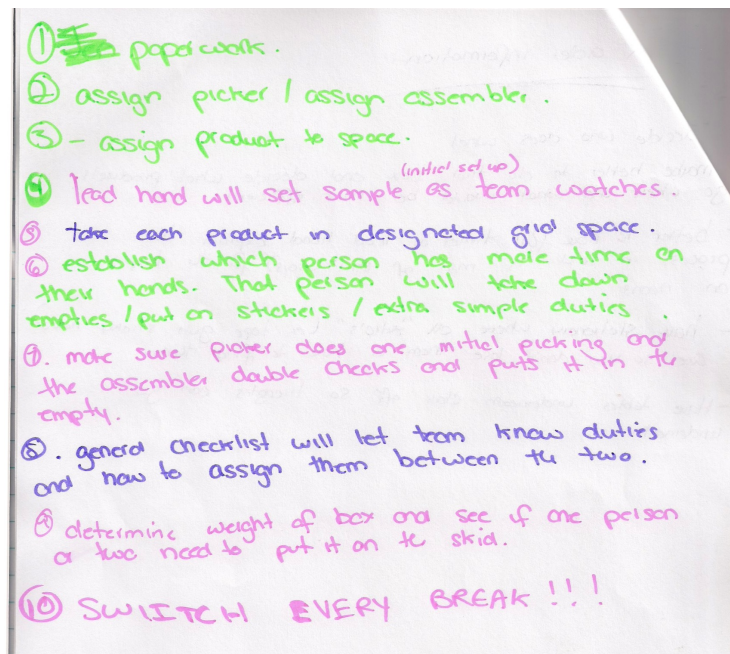 ① paperwork.
② assign picker / assign assembler.
③ - assign product to space.
(initial set up)
④ lead hand will set sample as team watches.
⑤ take each product in designated grid space.
⑥ establish which person has more time on
their hands. That person will take down
empties / put on stickers / extra simple duties.
⑦. make sure picker does one initial picking and
the assembler double checks and puts it in the
empty.
⑧. general checklist will let team know duties
and how to assign them between the two.
⑨ determine weight of box and see if one person
or two need to put it on the skid.
⑩ SWITCH EVERY BREAK!!!